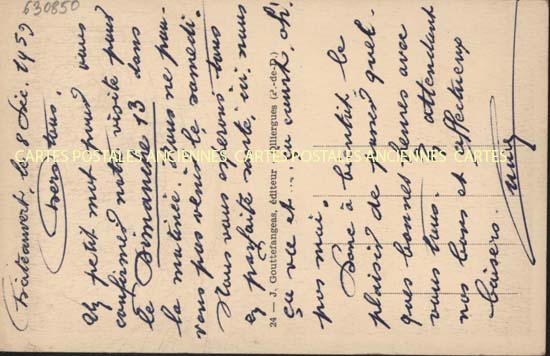 630850
Châteauvert, le 8 Déc. 1959
Chers tous,
Un petit mot pour vous
confirmer notre visite pour
le Dimanche 13 dans
la matinée. Nous ne pou-
vons pas venir le samedi.
Nous vous espérons tous
en parfaite santé, ici nous
ça va et ... ça court, oh!
pas mal.
Donc à bientôt le
plaisir de passer quel-
ques bonnes heures avec
vous tous. En attendant
nos bons et affectueux
baisers.
24 — J. Gouttefangeas, éditeur Olliergues (P.-de-D.)
CARTES POSTALES ANCIENNES CARTES POSTALES ANCIENNES CARTES POSTALES ANCIENNES